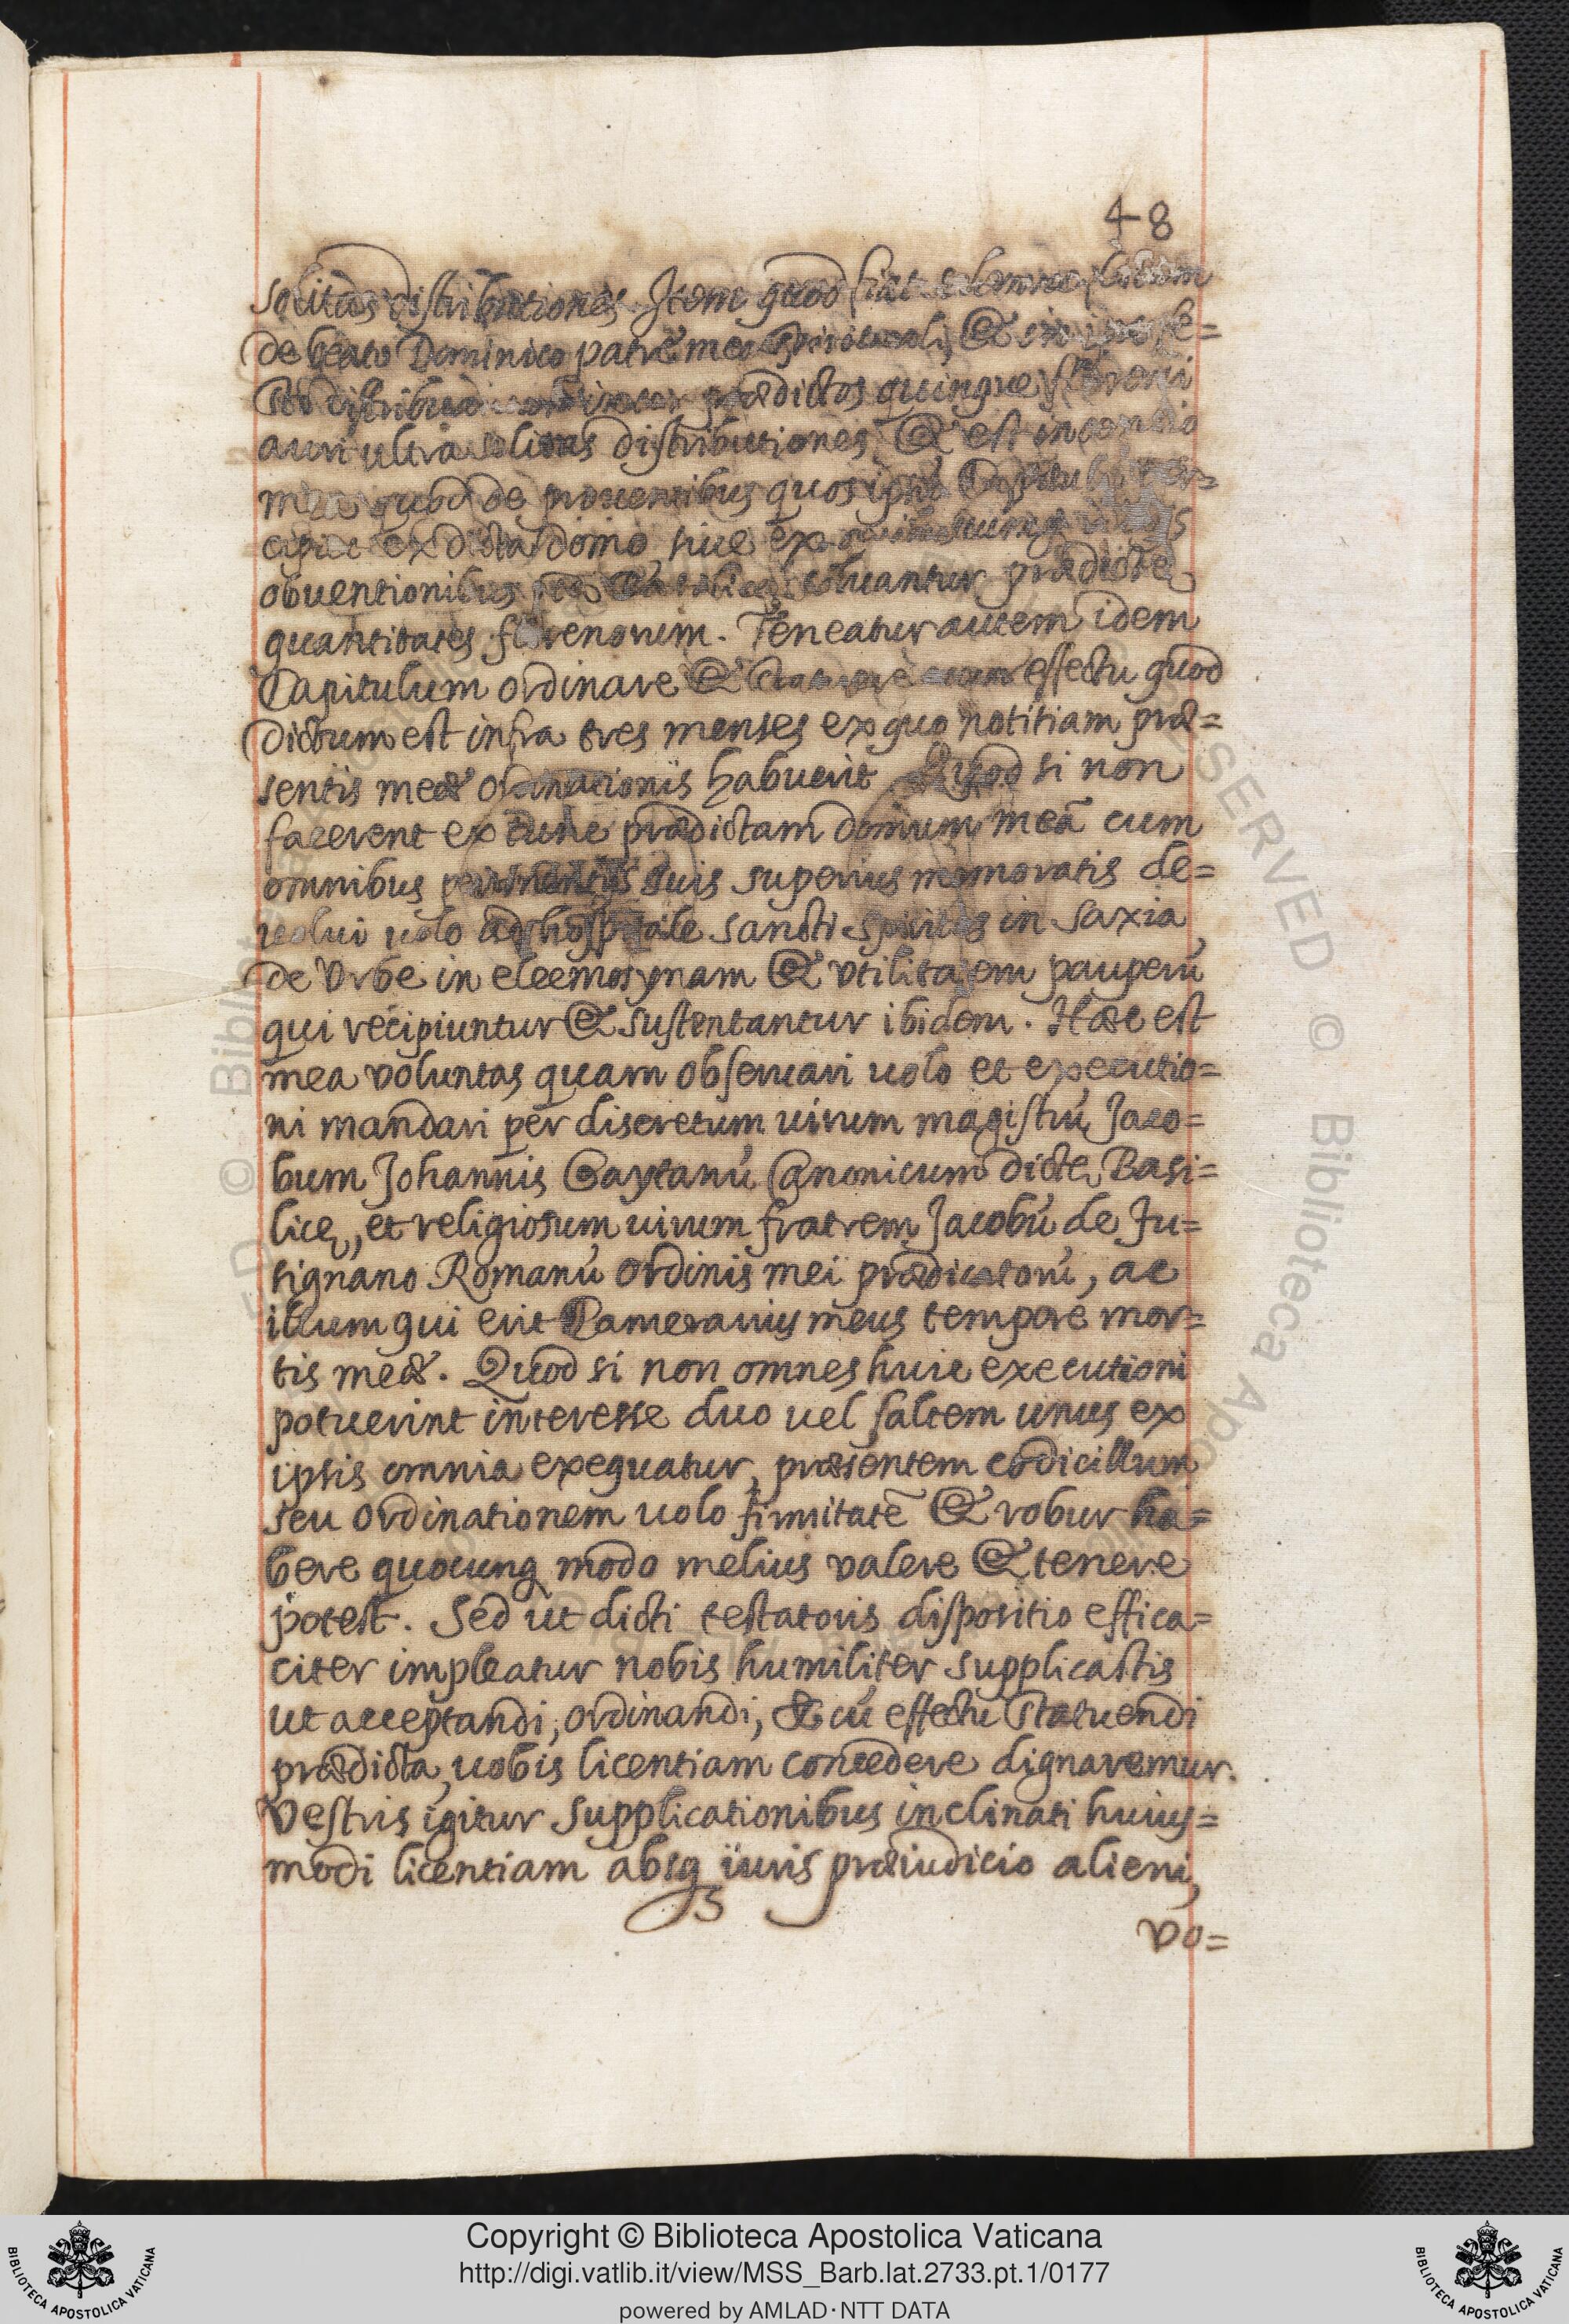 48
solitas distributiones Item quod fiat solemne festum
de beato Dominico patre meo spirituali, & in ipso fe=
sto distribuantur inter prædictos quinque floreni
auri ultra solitas distributiones, & est intentio
mea quod de prouentibus quos ipsū Capitulū per=
cipiet ex dicta domo, siue ex
obuentionibus soluantur prædictę
quantitates florenorum. Teneatur autem idem
Capitulum ordinare & statuere cum effectu quod
dictum est infra tres menses ex quo notitiam præ=
sentis meæ ordinationis habuerit Quod si non
facerent ex tunc prædictam domum meā cum
omnibus pertinentijs suis superius memoratis de=
uolui uolo ad hospitale sancti spiritus in saxia,
de Vrbe in eleemosynam & vtilitatem pauperū
qui recipiuntur & sustentantur ibidem. Hæc est
mea voluntas quam obseruari uolo et executio=
ni mandari per discretum uirum magistrū Jaco=
bum Johannis Caytanū Canonicum dictę Basi=
licę, et religiosum uirum fratrem Jacobū de Ju=
signano Romanū ordinis mei prædicatorū, ac
illum qui erit Camerarius meus tempore mor=
tis meæ. Quod si non omnes huic executioni
potuerint interesse duo uel saltem unus ex
ipsis omnia exequatur, præsentem codicillum
seu ordinationem uolo firmitatē & robur ha=
bere quocunq modo melius valere & tenere
potest. Sed ut dicti testatoris dispositio effica=
citer impleatur nobis humiliter supplicastis
ut acceptandi, ordinandi, & cū effectu statuendi
prædicta, uobis licentiam concedere dignaremur.
Vestris igitur supplicationibus inclinati huius=
modi licentiam absq iuris præiudicio alieni,
vo=
Copyright © Biblioteca Apostolica Vaticana
http://digi.vatlib.it/view/MSS_Barb.lat.2733.pt.1/0177
powered by AMLAD·NTT DATA
BIBLIOTECA APOSTOLICA VATICANA
BIBLIOTECA APOSTOLICA VATICANA